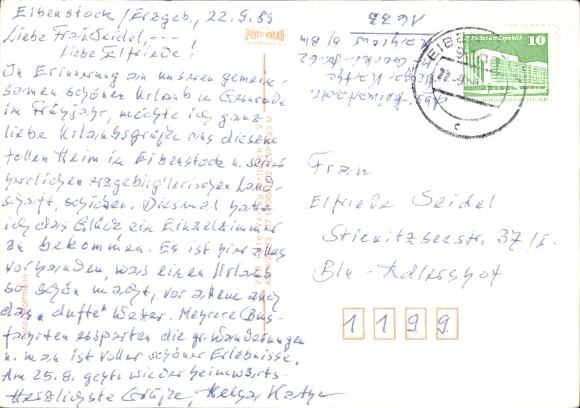 Eibenstock/Erzgeb., 22.9.89
Liebe Frau Seidel, ---
Liebe Elfriede!
In Erinnerung an unseren gemein-
samen schönen Urlaub in Gernrode
im Frühjahr, möchte ich ganz
liebe Urlaubsgrüße aus diesem
tollen Heim in Eibenstock u. seiner
herrlichen erzgebirg'lerischen Land-
schaft, schicken. Diesmal hatte
ich das Glück ein Einzelzimmer
zu bekommen. Es ist hier alles
vorhanden, was einen Urlaub
so schön macht, vor allem auch
das "dufte" Wetter. Mehrere Bus-
fahrten ersparten die gr. Wanderungen
u. man ist voller schöner Erlebnisse.
Am 25.9. gehts wieder heimwärts.
Herzlichste Grüße, Helga Kathe
Abs.
Helga Kathe
b/Bln
EIBENSTOCK
22.-9.
c
10
Frau
Elfriede Seidel
Stienitzseestr. 37/I.
Bln-Adlershof
1199